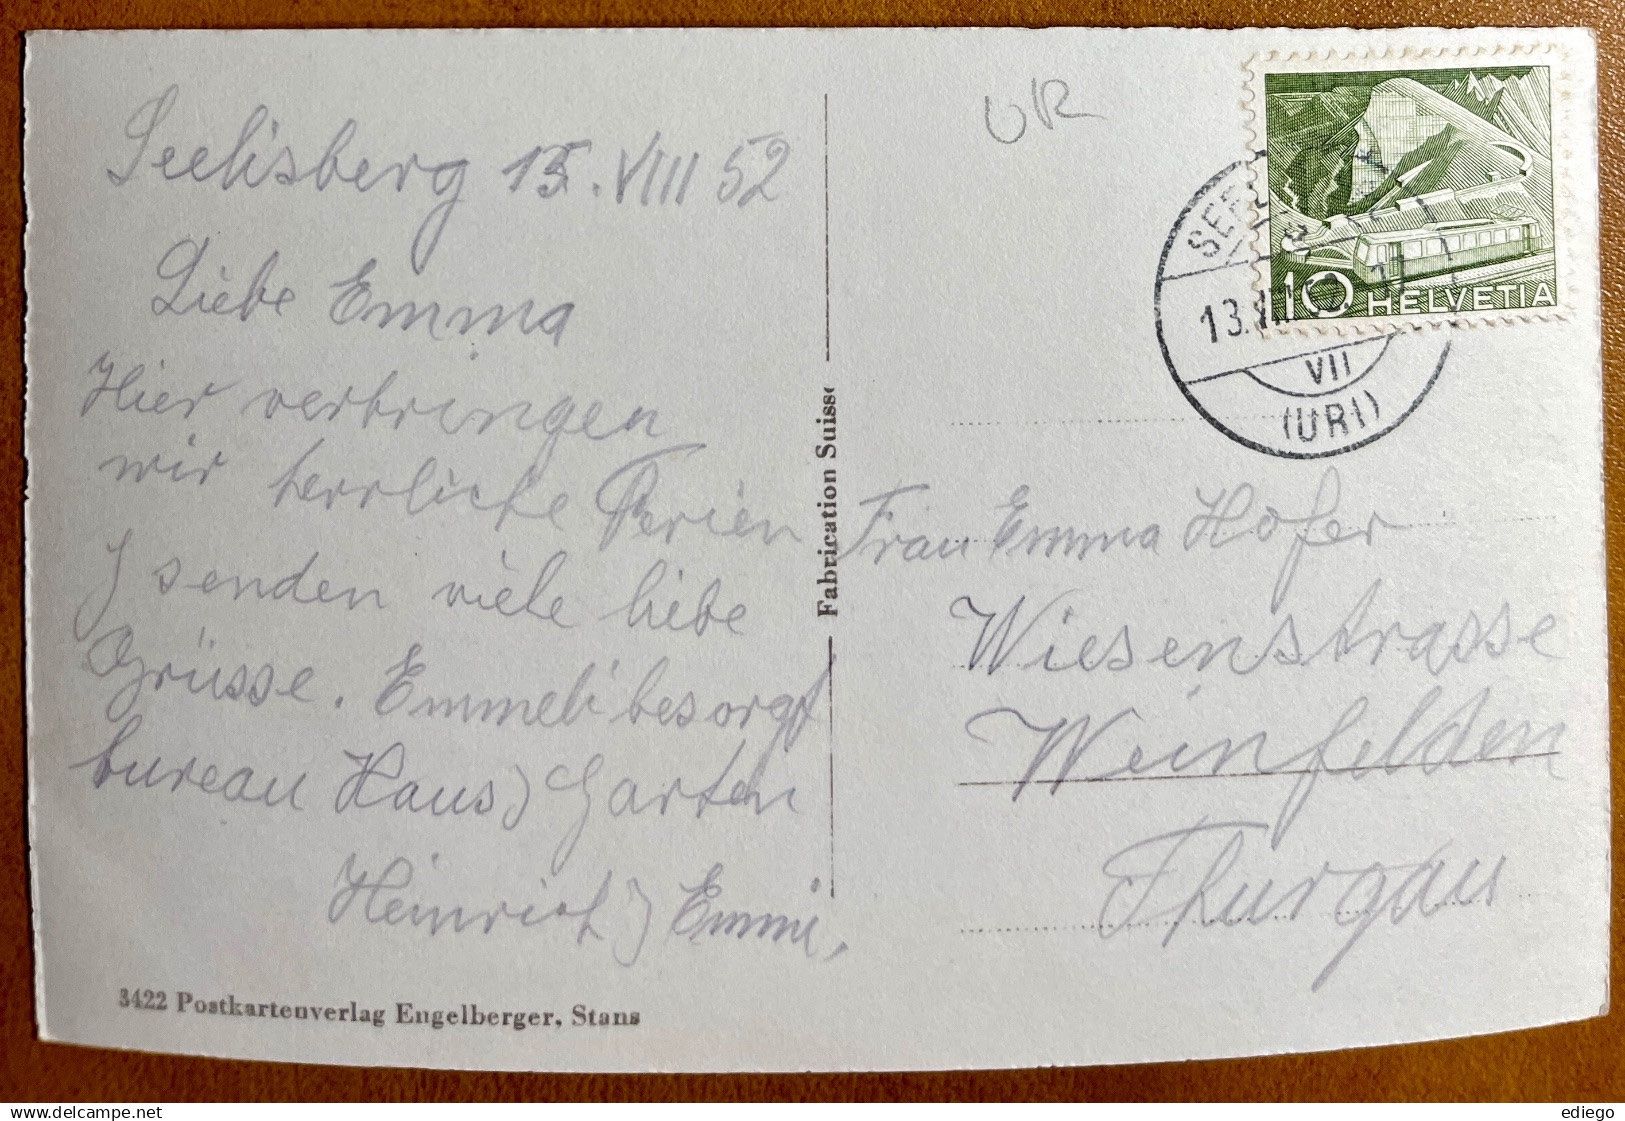 Seelisberg 13. VIII 52
Liebe Emma
Hier verbringen
wir herrliche Ferien
senden viele liebe
Grüsse. Emmeli besorgt
bureau Haus Garten
Heinrich Emmi.
3422 Postkartenverlag Engelberger, Stans
Fabrication Suisse
UR
10 HELVETIA
13.VIII.52
VII
(URI)
Frau Emma Hofer
Wiesenstrasse
Weinfelden
Thurgau
www.delcampe.net
edlego